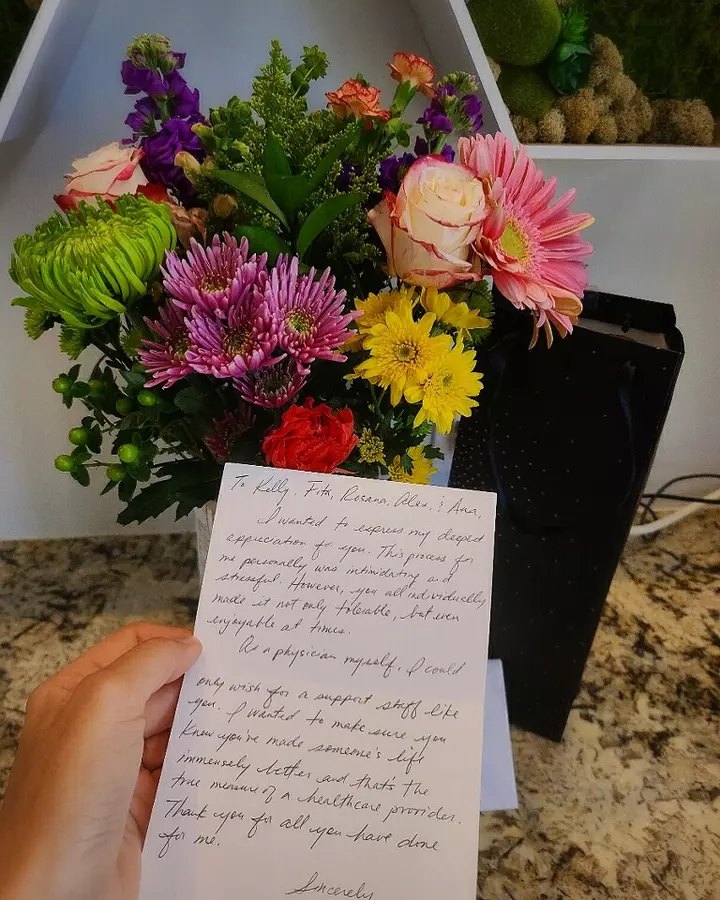 To Kelly, Fita, Rosana, Alex, & Ana,
I wanted to express my deeped
appreciation for you. This process for
me personally was intimidating and
stressful. However, you all individually
made it not only tolerable, but even
enjoyable at times.
As a physician myself, I could
only wish for a support staff like
you. I wanted to make sure you
know you've made someone's life
immensely better and that's the
true measure of a healthcare provider.
Thank you for all you have done
for me.
Sincerely